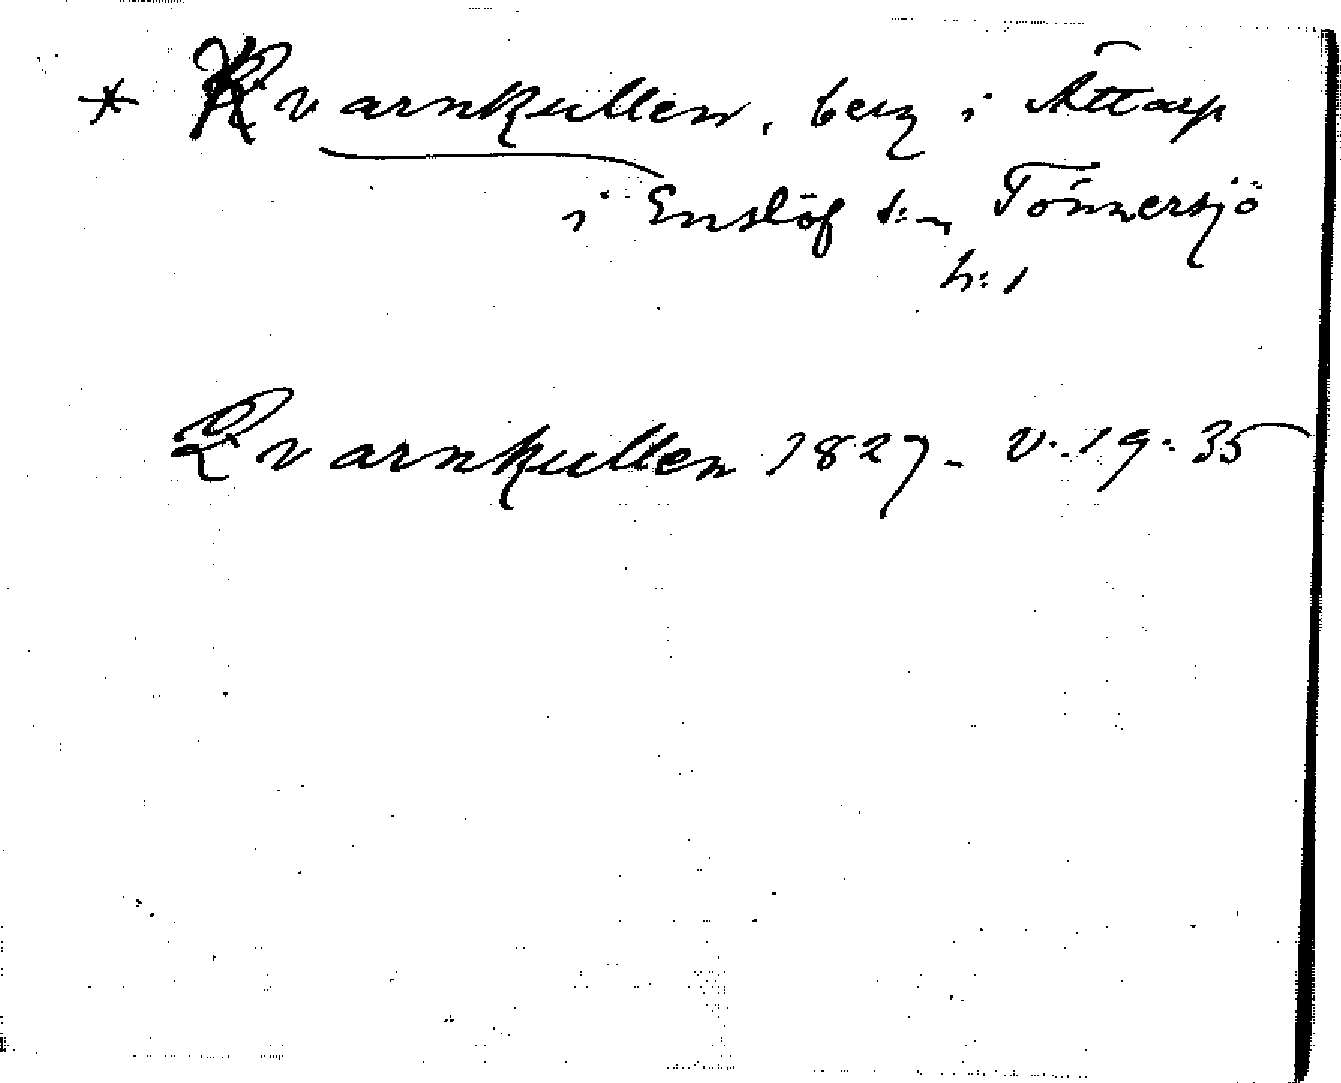 * Kvarnkullen, berg i Ättarp
i Enslöf s:n, Tönnersjö
h:d
Qvarnkullen 1827. V. 19: 35